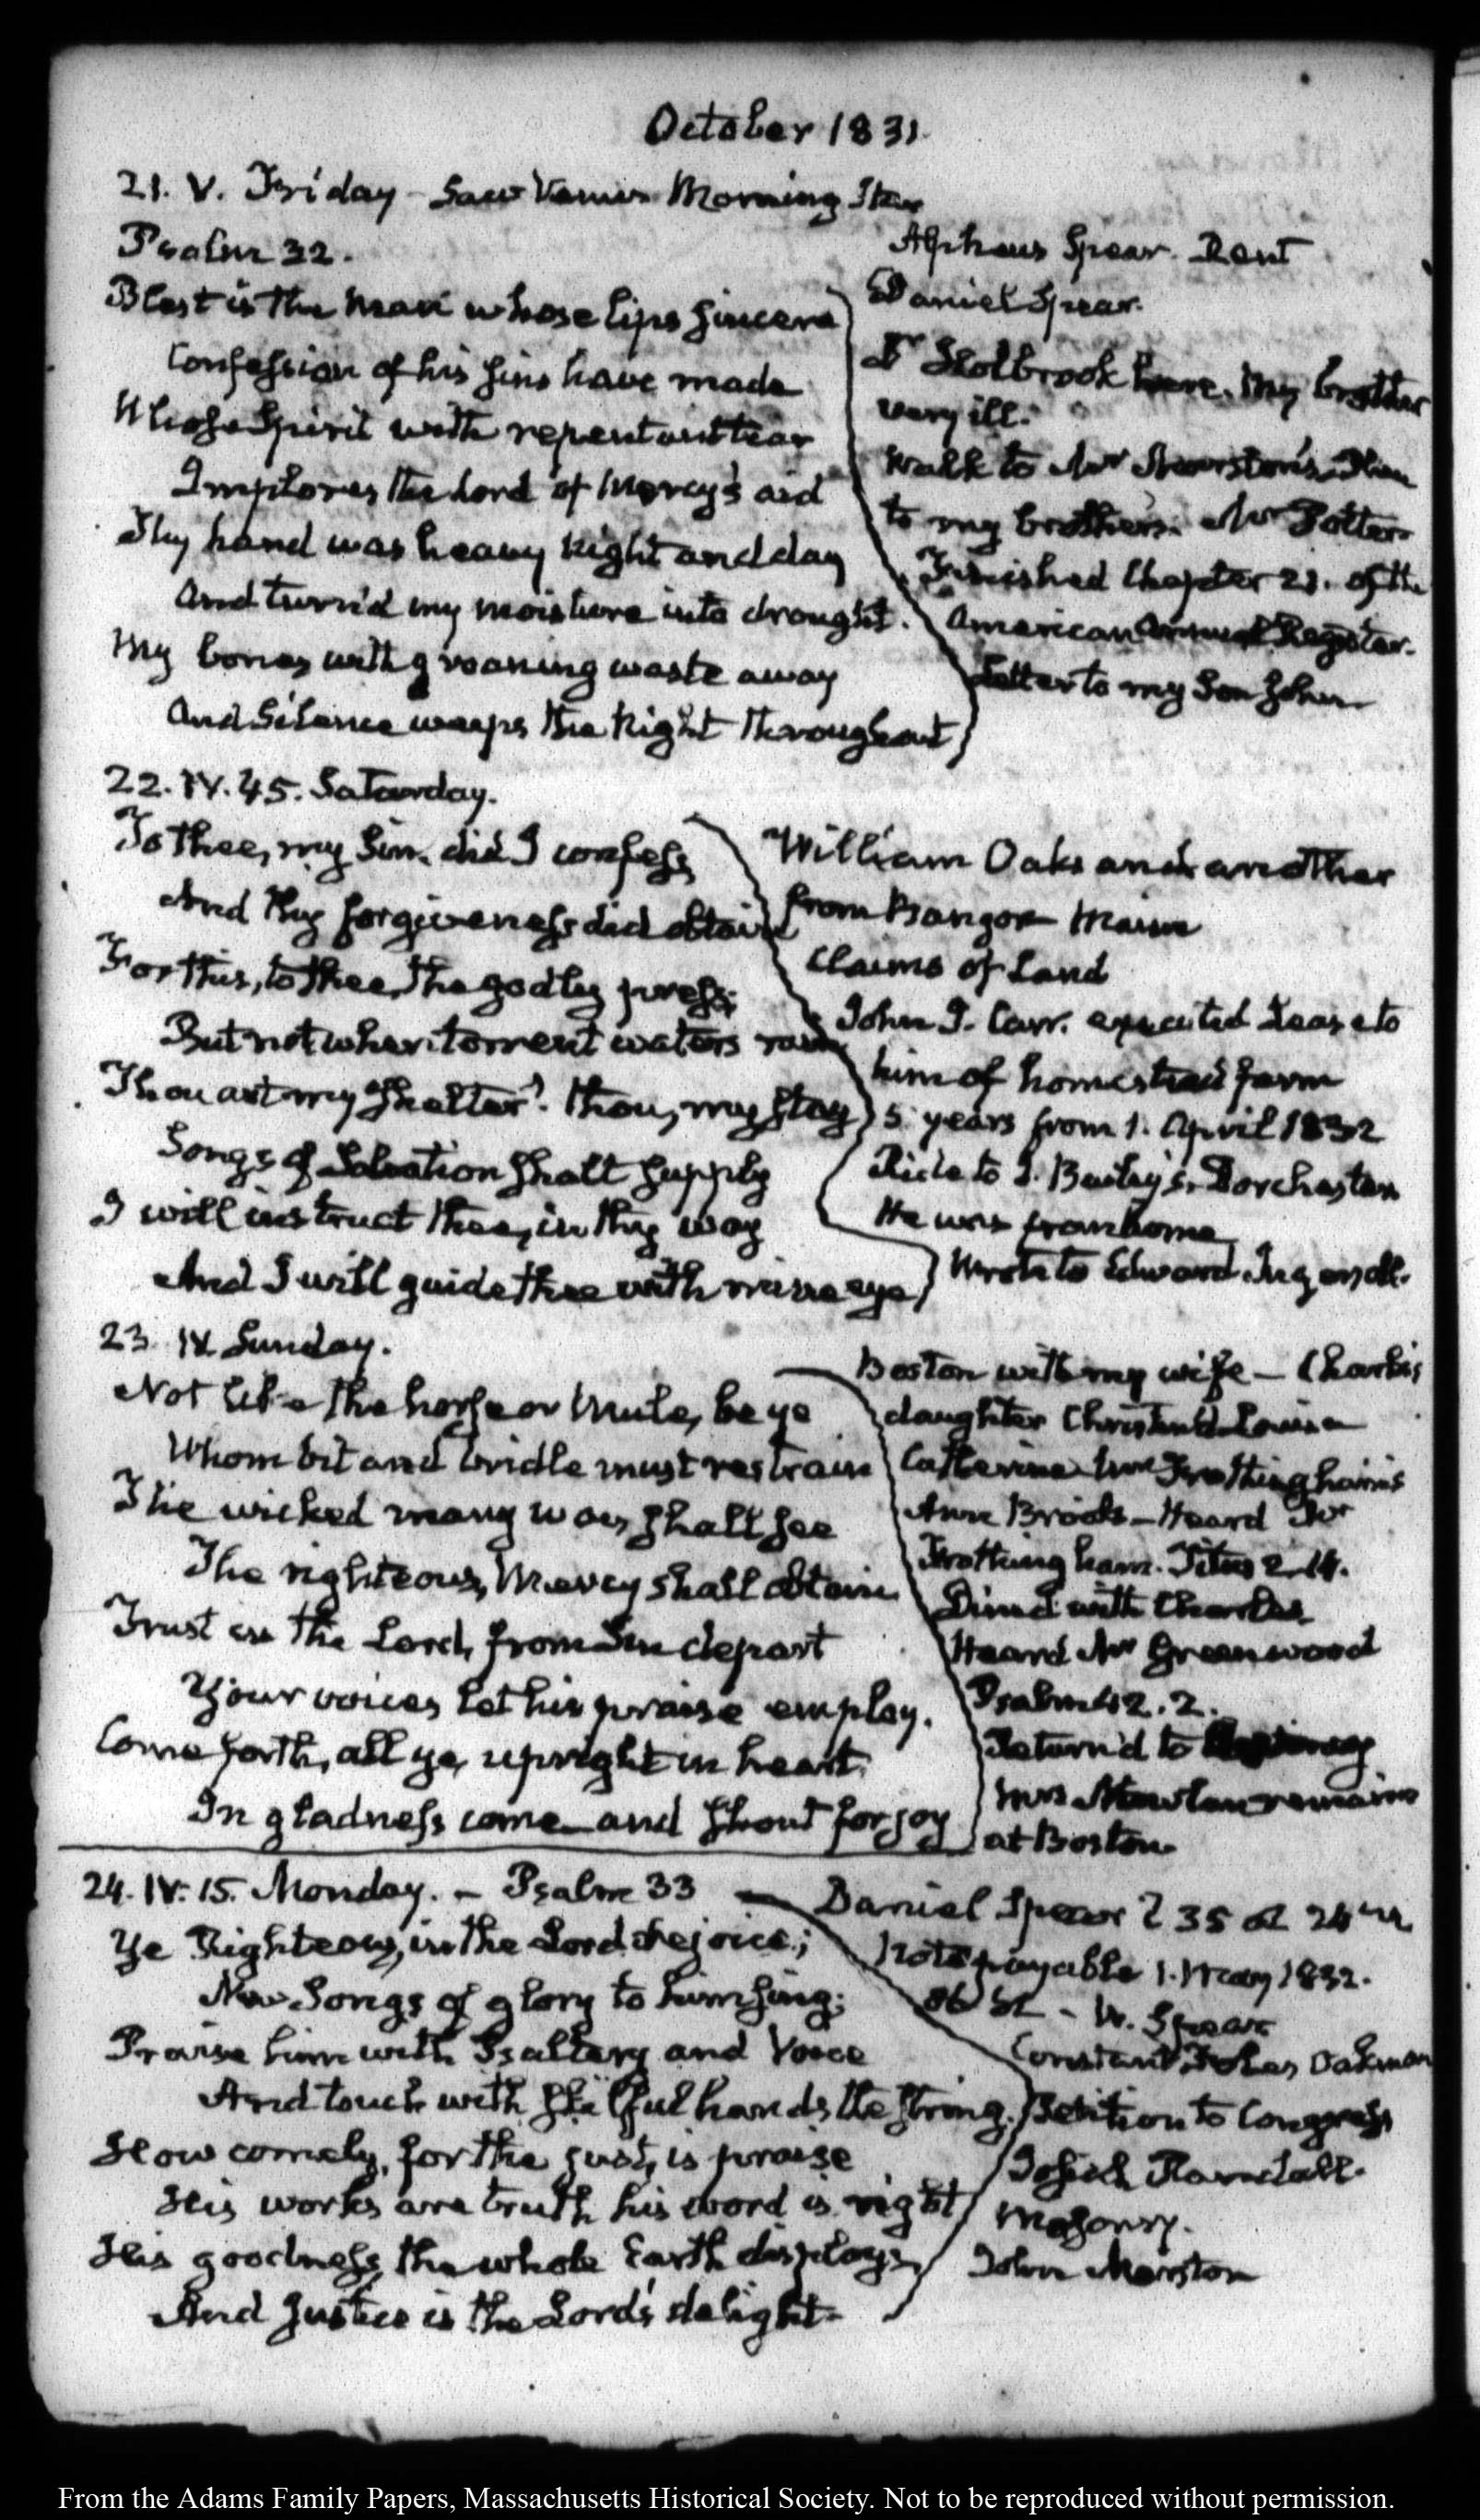 October 1831
21. V. Friday - Saw Venus Morning Star
Psalm 32.
Blest is the Man whose lips sincere
Confession of his sins have made
Whose Spirit with repentant tear
Implores the Lord of Mercy's aid
Thy hand was heavy Night and day
And turn'd my moisture into drought.
My bones with groaning waste away
And Silence weeps the Night throughout
Alpheus Spear. Rent
Daniel Spear.
Dr Holbrook here. My brother
very ill.
Walk to Mr Marston's. Then
to my brother's. Mr Potter
Finished Chapter 21. of the
American Annual Register.
Letter to my Son John
22. IV. 45. Saturday.
To thee, my Sin, did I confess
And thy forgiveness did obtain
For this, to thee, the godly press
But not when torrent waters
Thou art my Shelter. Thou, my stay
Songs of Salvation shalt supply
I will instruct thee, in thy way
And I will guide thee with mine eye
William Oaks and another
from Bangor Maine
Claims of Land
John J. Carr. executed Lease to
him of homestead farm
5 years from 1. April 1832
Ride to J. Bailey's. Dorchester
He was from home
Wrote to Edward Ingersoll.
23. IV. Sunday.
Not like the horse or Mule, be ye
Whom bit and bridle must restrain
The wicked many woes shall see
The righteous, Mercy shall obtain
Trust in the Lord, from Sin depart
Your voices let his praise employ.
Come forth, all ye, upright in heart
In gladness come and shout for joy
Boston with my wife - Charles's
daughter Christen'd Louisa
Catherine Mr Frothingham's
Ann Brooks - Heard Mr
Frothingham. Titus 2.14.
Dined with Charles
Heard Mr Greenwood
Psalm 42. 2.
Return'd to
Mrs remains
at Boston
24. IV. 15. Monday. - Psalm 33
Ye Righteous, in the Lord rejoice;
New Songs of glory to him sing;
Praise him with Psaltery and Voice
And touch with skilful hands the string.
How comely, for the just, is praise
His works are truth his word is right
His goodness, the whole Earth displays
And Justice is the Lord's delight.
Daniel Spear 35
Note payable 1. May 1832.
W. Spear
Constant Oakman
Petition to Congress
Josiah Randall.
Masonry.
John Marston
From the Adams Family Papers, Massachusetts Historical Society. Not to be reproduced without permission.